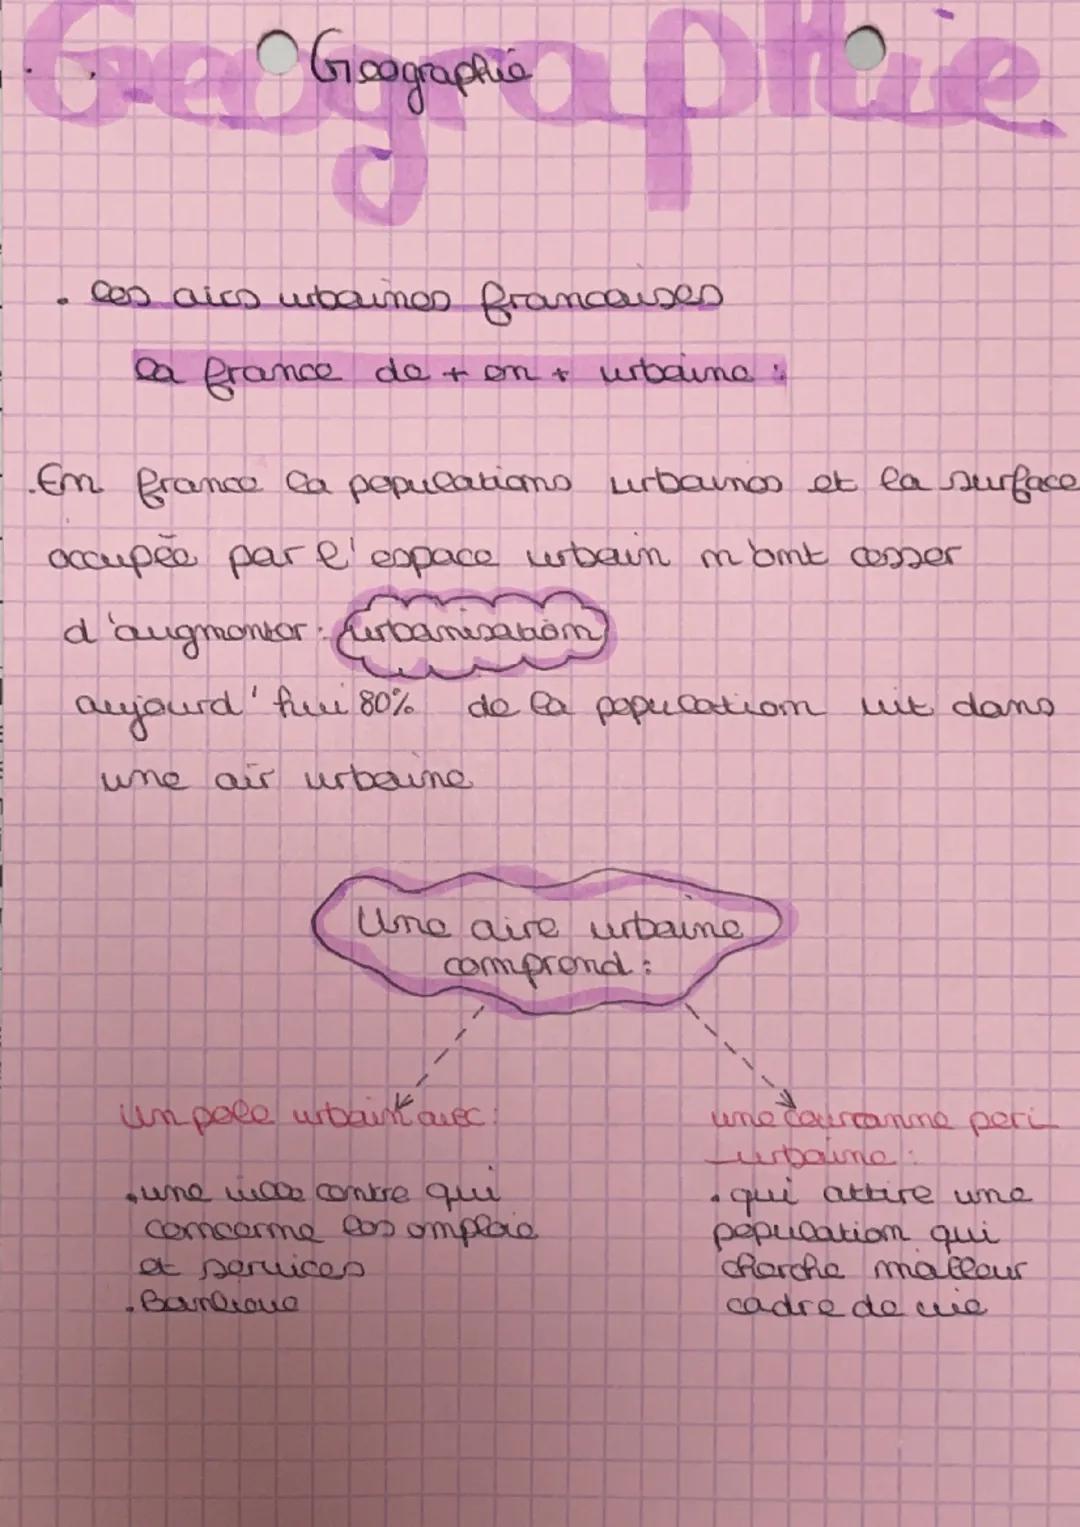 Geographie
Geographie
. les airs urbaines francaises
la france de + en + urbaine :
.En france la populations urbaines et la surface
occupée par l'espace urbain n'ont cesser
d'augmenter : urbanisation
aujourd'hui 80% de la population vit dans
une air urbaine
Une aire urbaine
comprend :
un pole urbain avec :
. une ville centre qui
concerne les emploie
et services
. Banlieue
une couranne peri
urbaine :
. qui attire une
population qui
cherche meilleur
cadre de vie